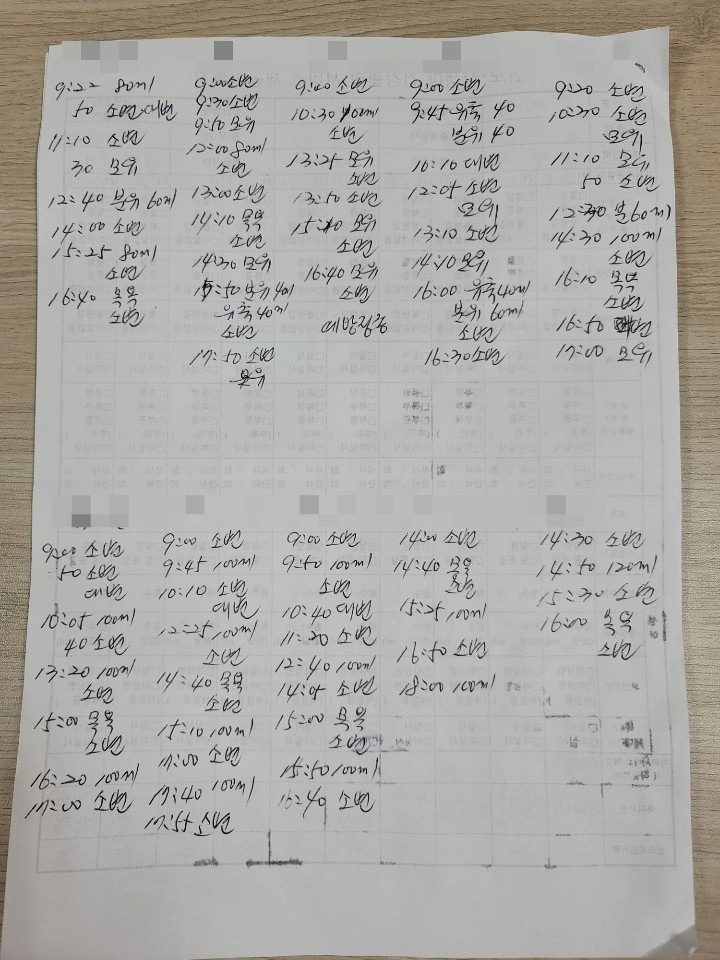 9:22 80ml
50 소변.대변
11:10 소변
30 모유
12:40 분유 60ml
14:00 소변
15:25 80ml
소변
16:40 목욕
소변
9:00 소변
9:30 소변
9:50 모유
12:00 80ml
소변
13:00 소변
14:10 목욕
소변
14:30 모유
15:50 분유 40ml
유축 40ml
소변
17:50 소변
모유
9:00 소변
10:30 100ml
소변
13:25 모유
소변
13:50 소변
15:10 모유
소변
16:40 모유
소변
예방접종
9:00 소변
9:45 유축 40
분유 40
10:10 대변
12:05 소변
모유
13:10 소변
14:10 모유
16:00 유축 40ml
분유 60ml
소변
16:30 소변
9:20 소변
10:30 소변
모유
11:10 모유
50 소변
12:30 분 60ml
14:30 100ml
소변
16:10 목욕
소변
16:50
17:00 모유
9:00 소변
50 소변
대변
10:05 100ml
40 소변
13:20 100ml
소변
15:00 목욕
소변
16:20 100ml
17:00 소변
9:00 소변
9:45 100ml
10:10 소변
대변
12:25 100ml
소변
14:40 목욕
소변
15:10 100ml
17:00 소변
17:40 100ml
17:55 소변
9:00 소변
9:50 100ml
소변
10:40 대변
11:20 소변
12:40 100ml
14:05 소변
15:00 목욕
소변
15:50 100ml
16:40 소변
14:00 소변
14:40 목욕
소변
15:25 100ml
16:50 소변
18:00 100ml
14:30 소변
14:50 120ml
15:30 소변
16:00 목욕
소변